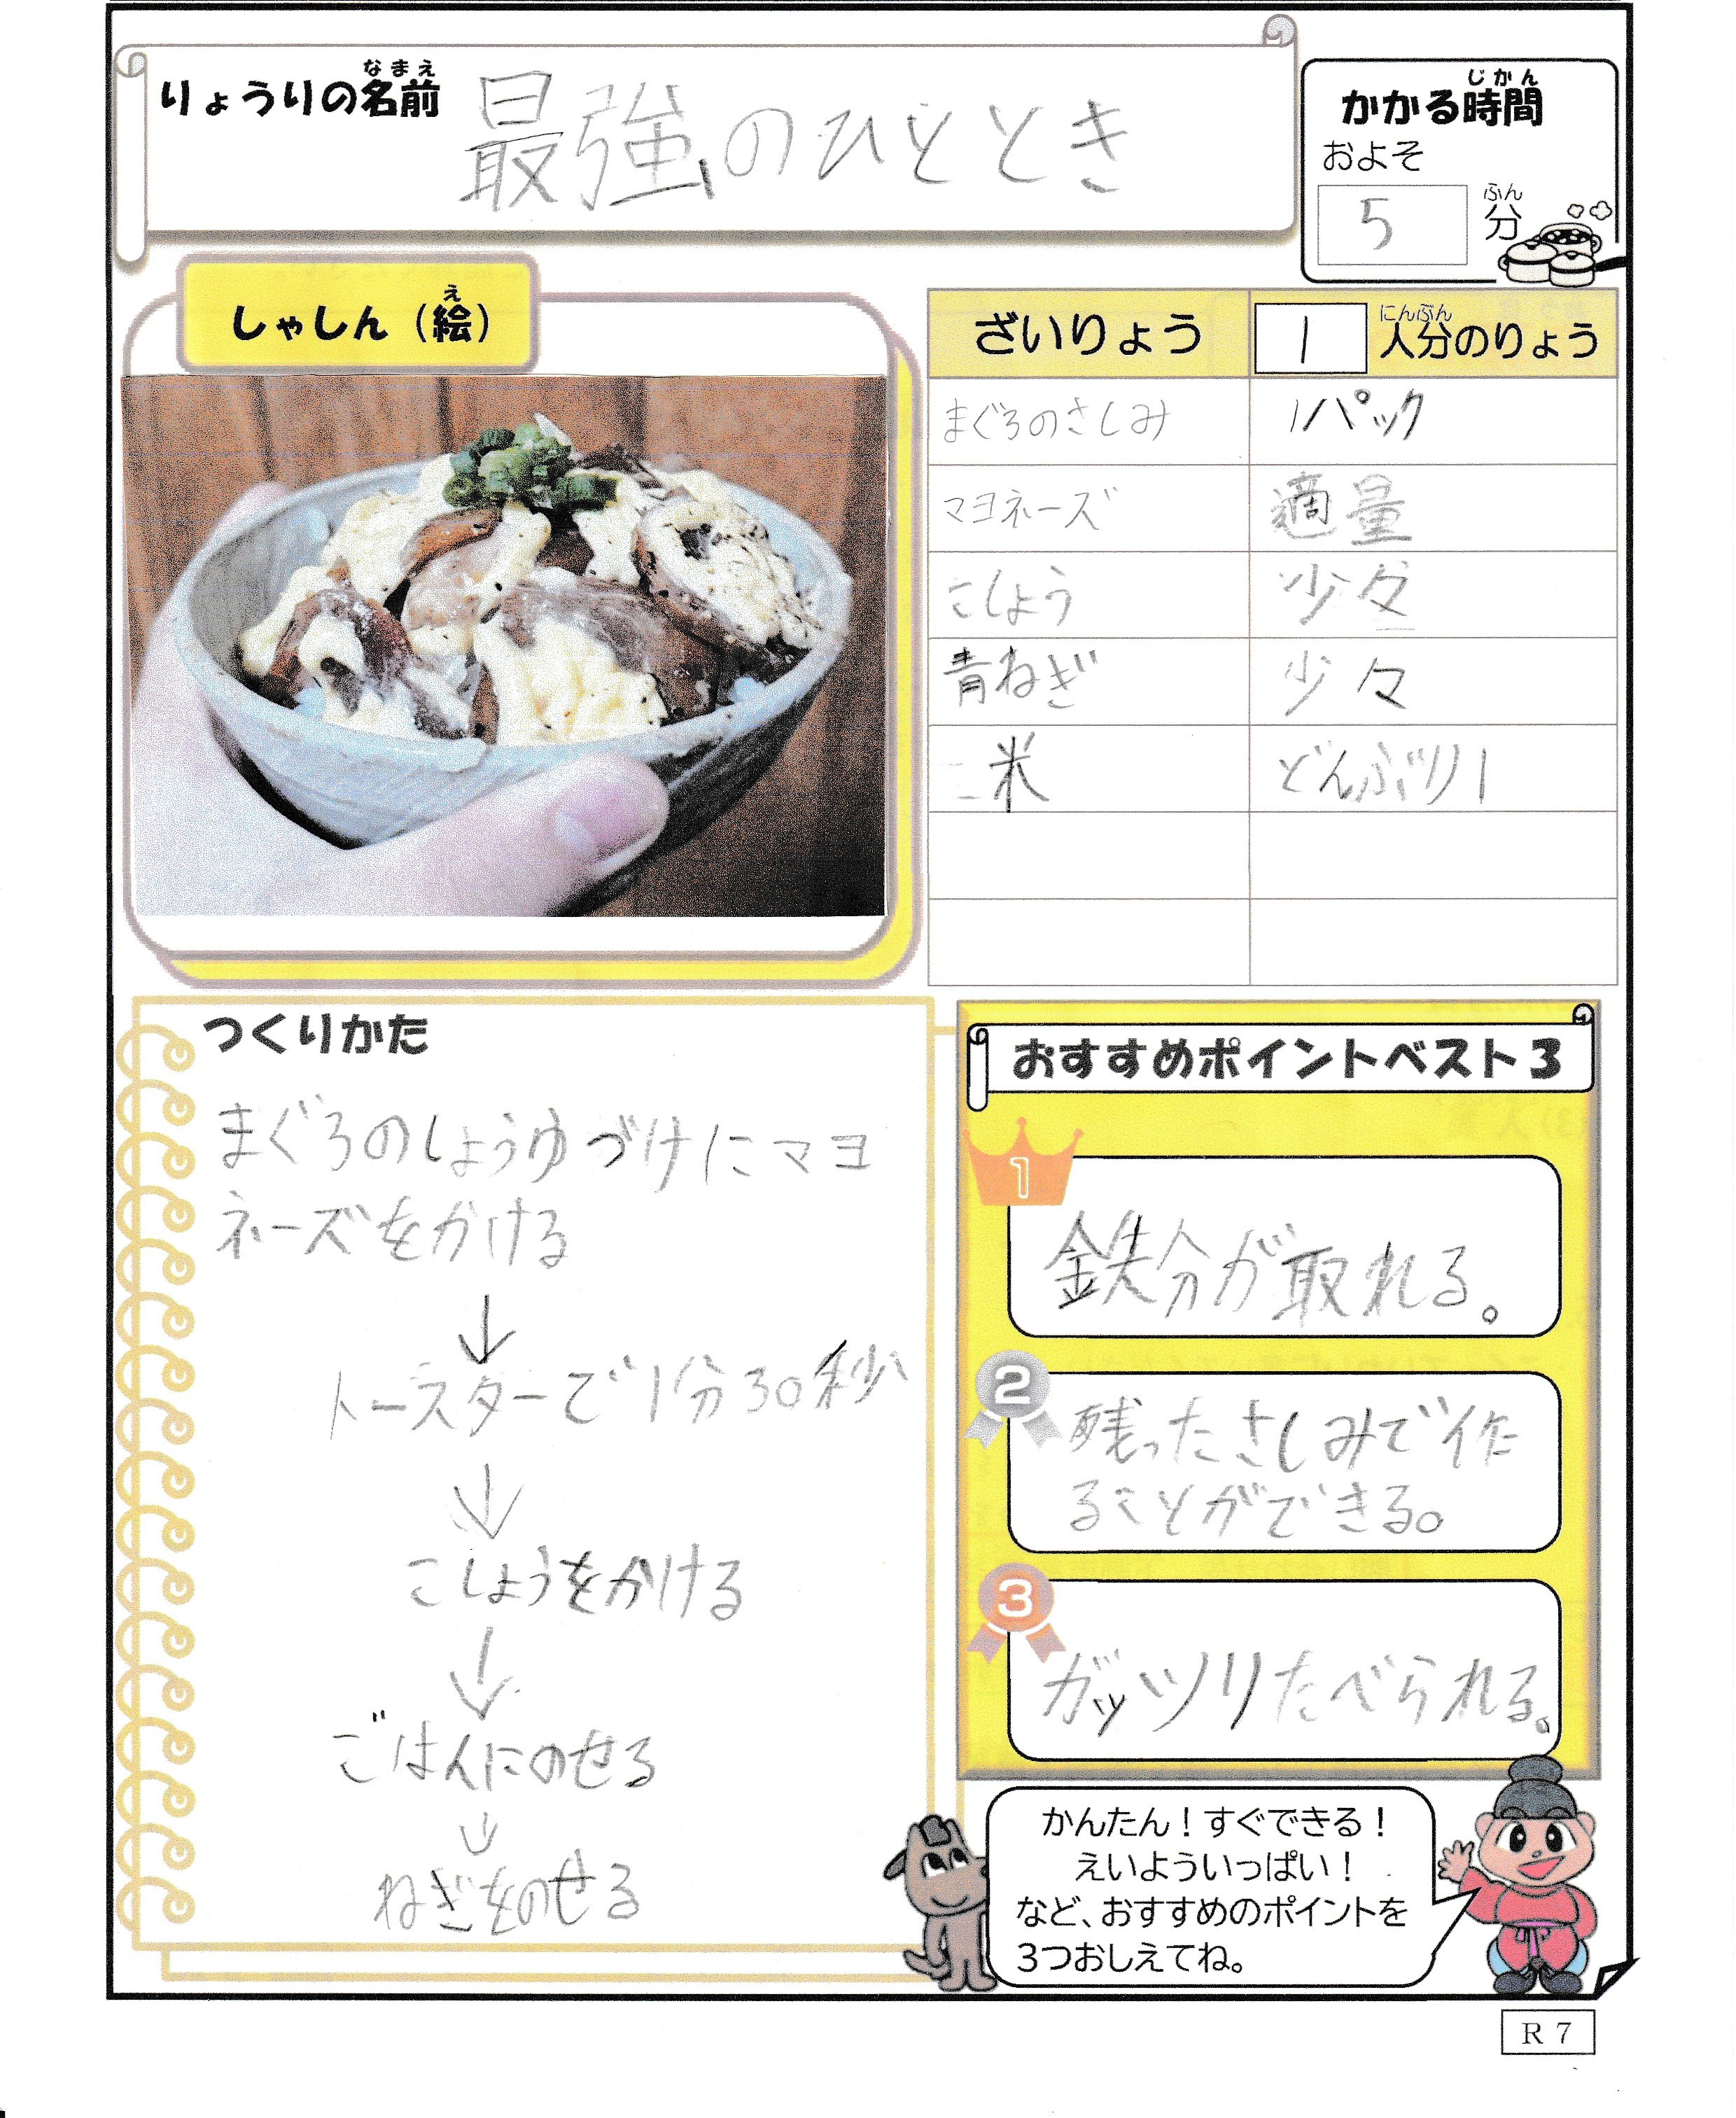 りょうりの名前
なまえ
最強のひととき
かかる時間
じかん
およそ
5
分
ふん
しゃしん（絵）
え
ざいりょう
1
人分のりょう
にんぶん
まぐろのさしみ
1パック
マヨネーズ
適量
こしょう
少々
青ねぎ
少々
米
どんぶり1
つくりかた
まぐろのしょうゆづけにマヨ
ネーズをかける
↓
トースターで1分30秒
↓
こしょうをかける
↓
ごはんにのせる
↓
ねぎをのせる
おすすめポイントベスト3
1
鉄分が取れる。
2
残ったさしみで作
ることができる。
3
ガッツリたべられる。
かんたん！すぐできる！
えいよういっぱい！
など、おすすめのポイントを
3つおしえてね。
R7